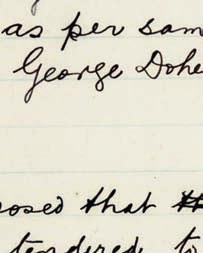 as per sam
George Dohe
osed that
tendered to